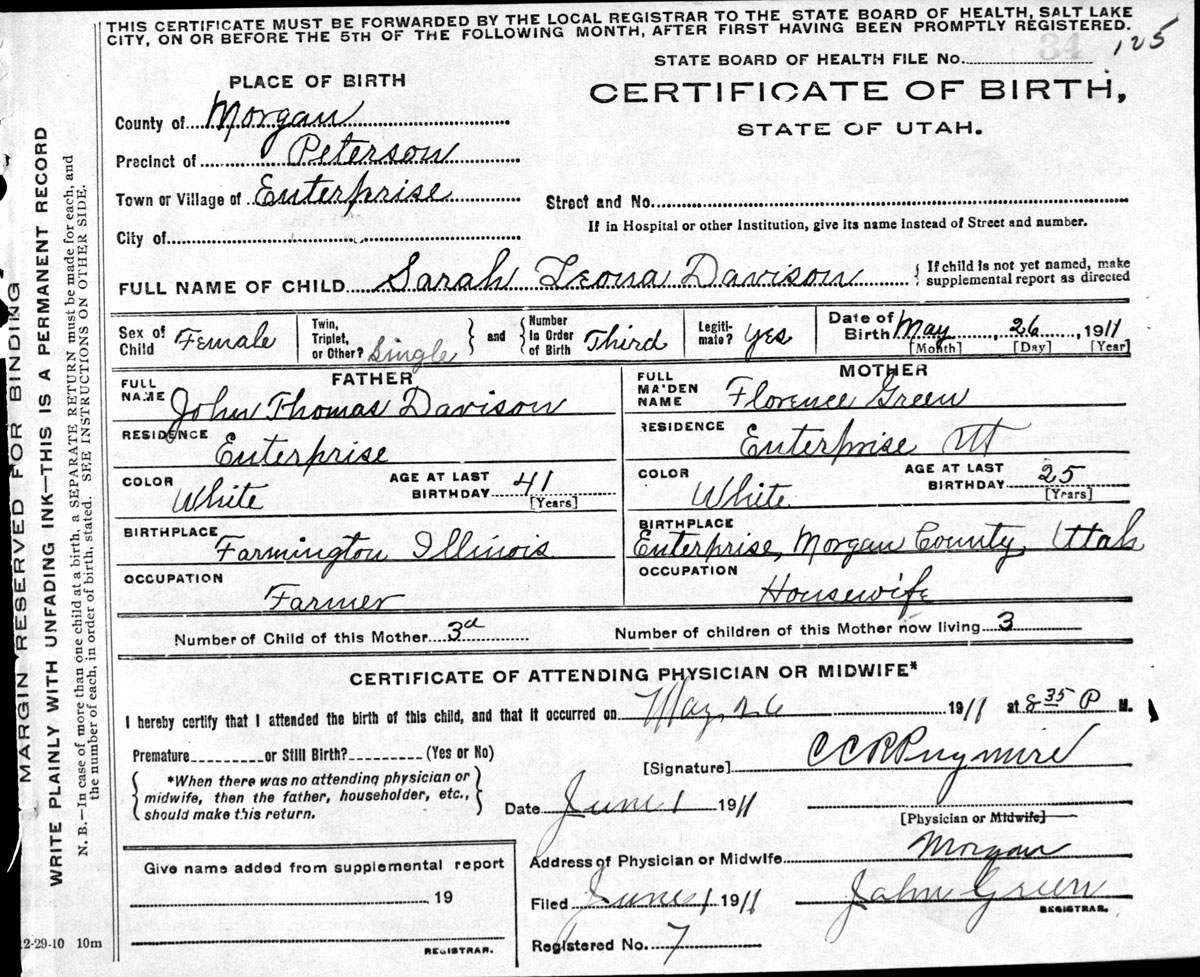 THIS CERTIFICATE MUST BE FORWARDED BY THE LOCAL REGISTRAR TO THE STATE BOARD OF HEALTH, SALT LAKE
CITY, ON OR BEFORE THE 5TH OF THE FOLLOWING MONTH, AFTER FIRST HAVING BEEN PROMPTLY REGISTERED.
34
125
STATE BOARD OF HEALTH FILE No.
PLACE OF BIRTH
CERTIFICATE OF BIRTH,
STATE OF UTAH.
County of Morgan
Precinct of Peterson
Town or Village of Enterprise
Street and No.
If in Hospital or other Institution, give its name instead of Street and number.
City of
FULL NAME OF CHILD Sarah Leona Davison { If child is not yet named, make
supplemental report as directed
Sex of Child Female
Twin, Triplet, or Other? Single } and { Number In Order of Birth Third
Legiti-mate? Yes
Date of Birth May 26, 1911
[Month] [Day] [Year]
FATHER
FULL NAME John Thomas Davison
RESIDENCE Enterprise
COLOR White AGE AT LAST BIRTHDAY 41 [Years]
BIRTHPLACE Farmington Illinois
OCCUPATION Farmer
MOTHER
FULL MAIDEN NAME Florence Green
RESIDENCE Enterprise Ut
COLOR White AGE AT LAST BIRTHDAY 25 [Years]
BIRTHPLACE Enterprise, Morgan County, Utah
OCCUPATION Housewife
Number of Child of this Mother 3d Number of children of this Mother now living 3
CERTIFICATE OF ATTENDING PHYSICIAN OR MIDWIFE*
I hereby certify that I attended the birth of this child, and that it occurred on May 26 1911 at 8 35 P M.
Premature or Still Birth? (Yes or No)
{ *When there was no attending physician or
midwife, then the father, householder, etc.,
should make this return. }
[Signature]
Date June 1 1911
[Physician or Midwife]
Give name added from supplemental report
19
REGISTRAR.
Address of Physician or Midwife Morgan
Filed June 1 1911 John Green
REGISTRAR.
Registered No. 7
2-29-10 10m
MARGIN RESERVED FOR BINDING
WRITE PLAINLY WITH UNFADING INK—THIS IS A PERMANENT RECORD
N. B.—In case of more than one child at a birth, a SEPARATE RETURN must be made for each, and
the number of each, in order of birth, stated. SEE INSTRUCTIONS ON OTHER SIDE.